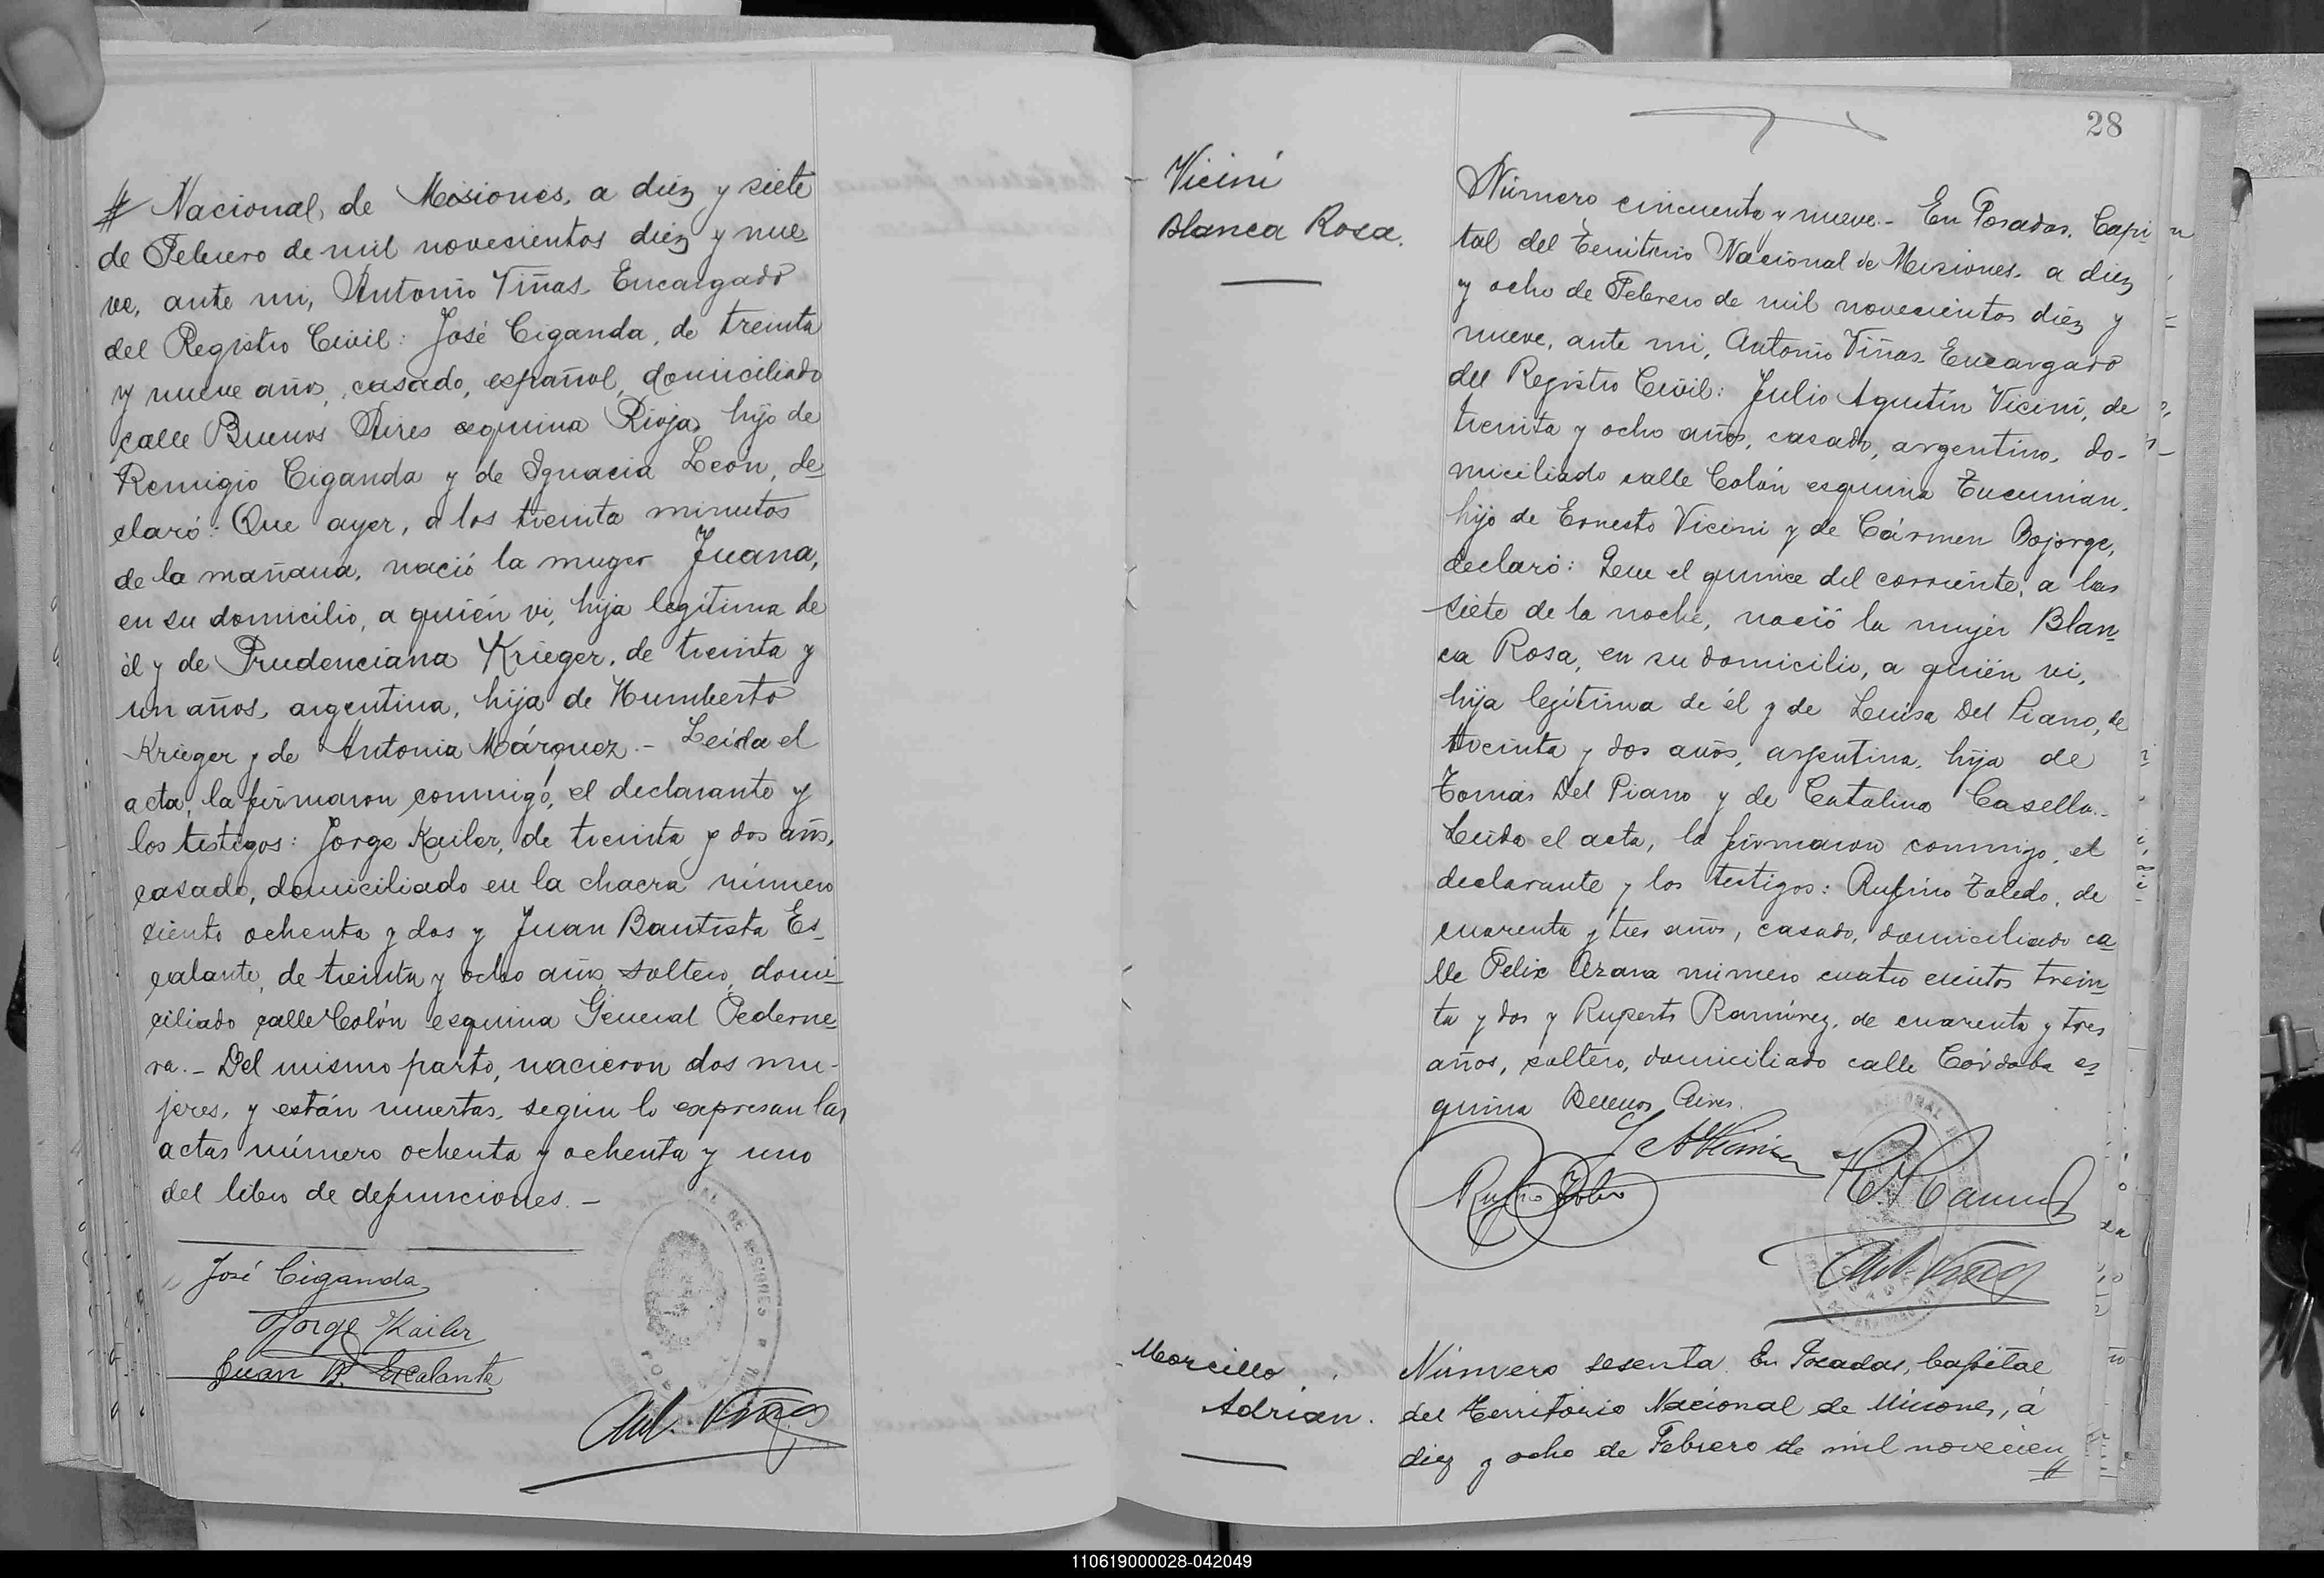 # Nacional, de Misiones, a diez y siete
de Febrero de mil novecientos diez y nue-
ve, ante mi, Antonio Viñas Encargado
del Registro Civil: José Ciganda, de treinta
y nueve años, casado, español, domiciliado
calle Buenos Aires esquina Rioja, hijo de
Remigio Ciganda y de Ignacia Leon, de-
claró: Que ayer, a los treinta minutos
de la mañana, nació la muger Juana,
en su domicilio, a quién vi, hija legítima de
él y de Prudenciana Krieger, de treinta y
un años, argentina, hija de Humberto
Krieger y de Antonia Márquez.- Leída el
acta, la firmaron conmigo, el declarante y
los testigos: Jorge Kailer, de treinta y dos años,
casado, domiciliado en la chacra número
ciento ochenta y dos y Juan Bautista Es-
calante, de treinta y ocho años, soltero, domi-
ciliado calle Colón esquina General Pederne-
ra.- Del mismo parto, nacieron dos mu-
jeres, y están muertas, según lo expresan las
actas número ochenta y ochenta y uno
del libro de defunciones.-
José Ciganda
Jorge Kailer
Juan B. Escalante
Ant. Viñas
28
Vicini
Blanca Rosa.
Número cincuenta y nueve.- En Posadas, Capi-
tal del Territorio Nacional de Misiones, a diez
y ocho de Febrero de mil novecientos diez y
nueve, ante mi, Antonio Viñas Encargado
del Registro Civil: Julio Agustín Vicini, de
treinta y ocho años, casado, argentino, do-
miciliado calle Colón esquina Tucumán,
hijo de Ernesto Vicini y de Cármen Bojorge,
declaró: Que el quince del corriente, a las
siete de la noche, nació la mujer Blan-
ca Rosa, en su domicilio, a quién vi,
hija legítima de él y de Luisa Del Piano, de
treinta y dos años, argentina, hija de
Tomás Del Piano y de Catalina Casella.-
Leida el acta, la firmaron conmigo, el
declarante y los testigos: Rufino Toledo, de
cuarenta y tres años, casado, domiciliado ca-
lle Felix Azara número cuatro cientos trein-
ta y dos y Ruperto Ramírez, de cuarenta y tres
años, soltero, domiciliado calle Córdoba es-
quina Buenos Aires.
Ant. Viñas
Morcillo
Adrián.
Número sesenta. En Posadas, Capital
del Territorio Nacional de Misiones, á
diez y ocho de Febrero de mil novecien
110619000028-042049